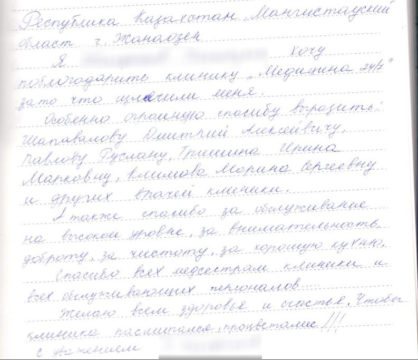 Республика Казахстан, Мангистауский
область г. Жанаозен
Я Хочу
поблогодарить клинику „Медицина 24/7"
за то что излечили меня.
Особенно огромную спосибу выразить:
Шаповалову Дмитрий Алексеевичу,
Павлову Руслану, Гришина Ирина
Марковну, Климова Марина Сергеевну
и других врачей клиники.
А также спосибо за обслуживание
на высоком уровне, за внимательность,
доброту, за чистоту, за хорошую кухню.
Спосибо всех медсестрам клиники и
всех обслуживающих персоналов...
Желаю всем здоровье и счастья, Чтобы
клиника расширился, процветание!!!
с уважением